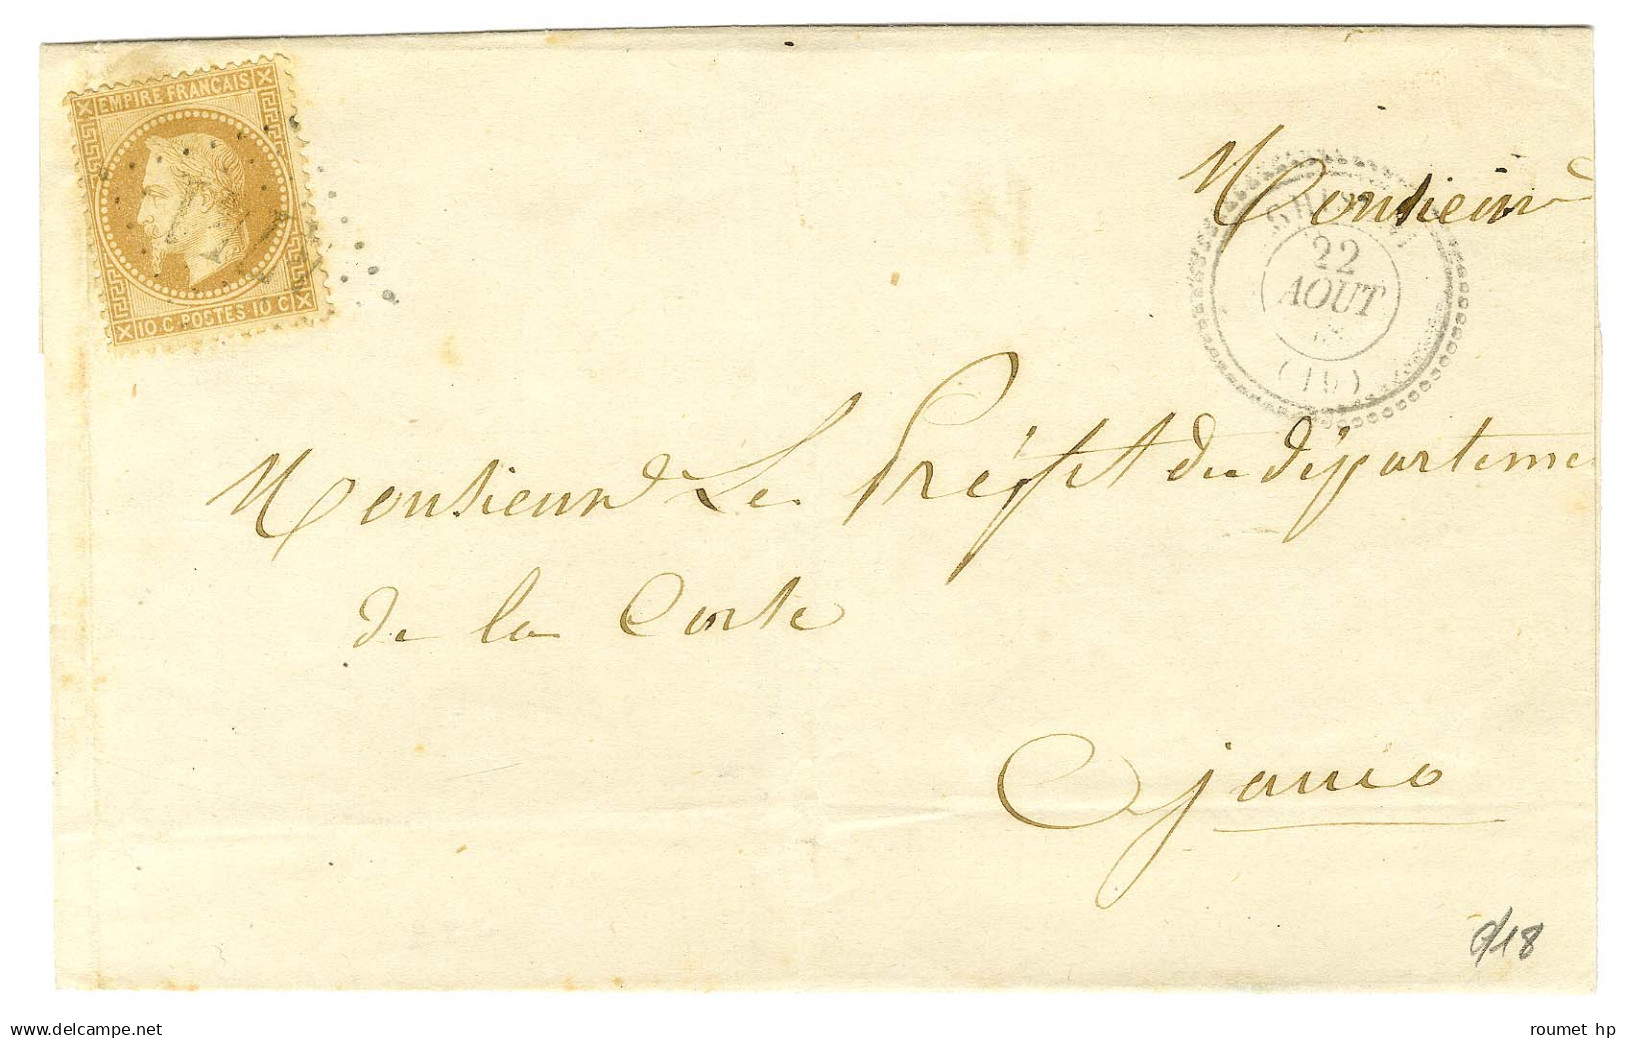 EMPIRE FRANÇAIS
10 C. POSTES 10 C.
Monsieur
22
AOUT
Monsieur Le Préfet du départeme
de la Corse
Ajaccio
d/18
www.delcampe.net
roumet hp